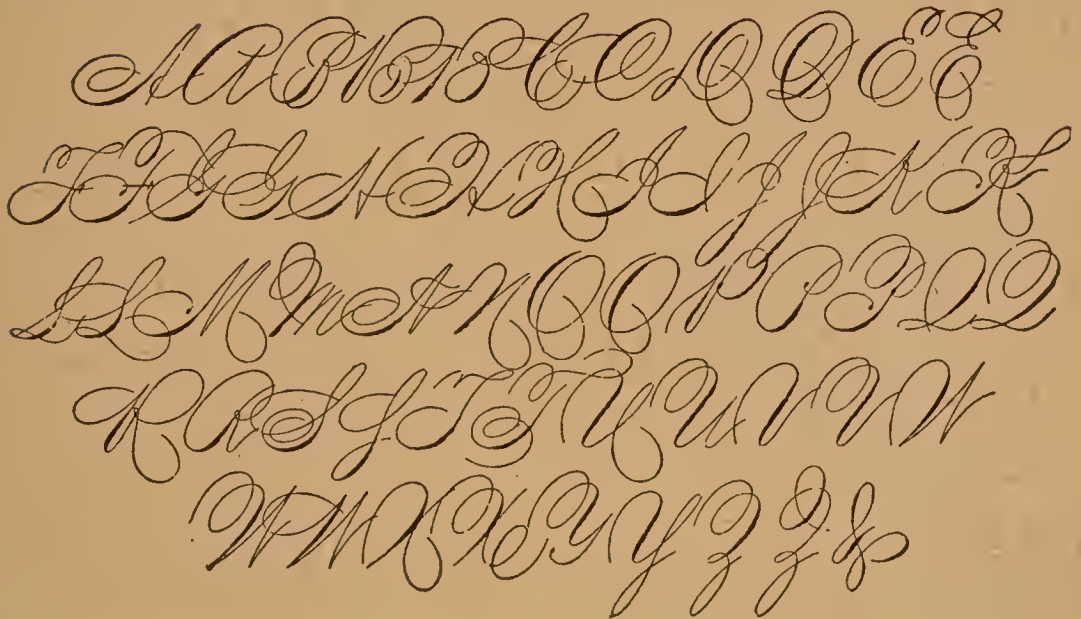 A A B B B C C D D E E
F F G G H H H I I J J K K
L L M M N N O O P P P Q Q
R R S S T T U U V V W
W W X X Y Y Z Z &